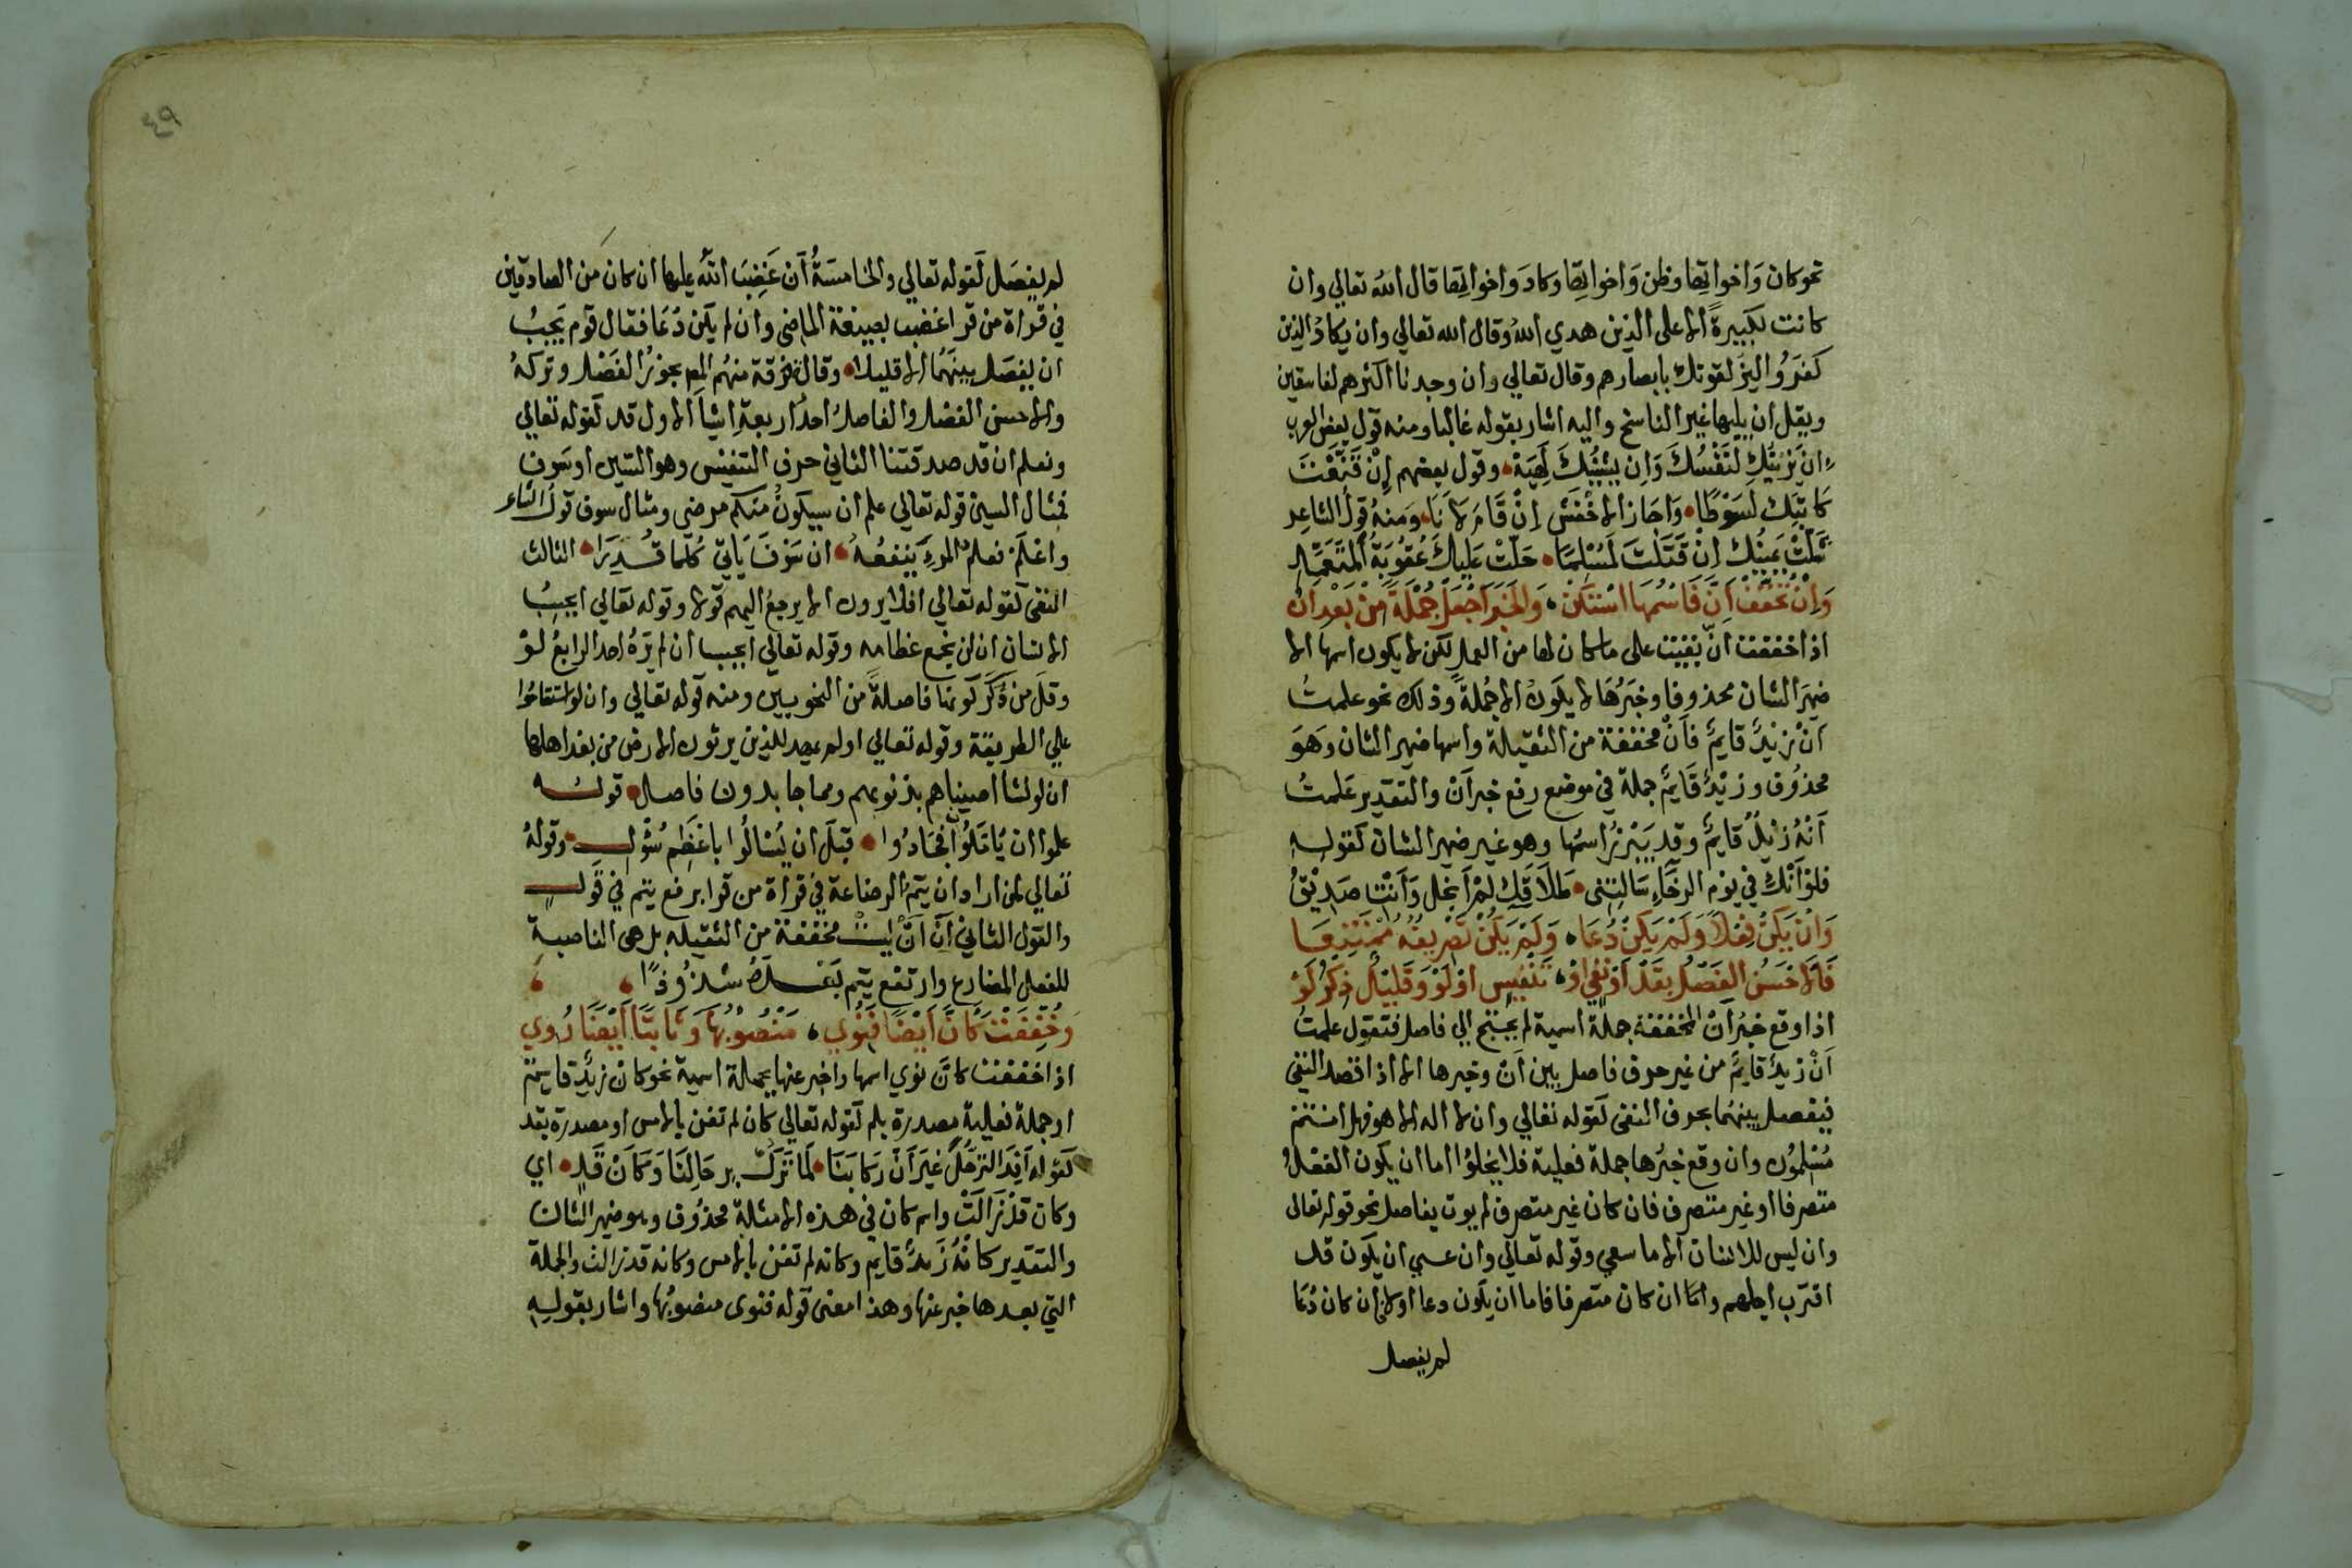 نحو كان وَاخواتها وظن وَاخواتها وكادَ واخواتها قال الله تعالي وان
كانت لكبيرةً الا على الذين هدي اللهُ وقال الله تعالي وان يكادُ الذين
كفَرُوا ليزلقونك بابصارهم وقال تعالي وان وجدنا اكثرهم لفاسقين
ويقل ان يليها غير الناسخ واليه اشار بقوله غالبا ومنه قول بعض العرب
اِن يَزينُكَ لنَفْسُكَ وَاِن يشينُكَ لَهِيَهْ وقول بعضهم اِنْ قَنَّعْتَ
كاتبَكَ لسَوْطًا وَاجَاز الاخْفَش اِنْ قَامَ لاَنَا وَمنهُ قولُ الشاعِر
شَلَّتْ يمينُكَ اِنْ قَتَلْتَ لَمُسْلِمًا حَلَّتْ عَلَيكَ عُقُوبَةُ المتَعَمِّدِ
وَاِنْ تُخَفَّفْ اَنَّ فَاسْمُهَا اسْتَكَنّْ وَالخَبَرَ اجْعَلْ جُمْلَةً مِنْ بَعْدِ اَنْ
اذا خففت انّ بقيت على ما كان لها من العمل لكن لا يكون اسمها الا
ضميرَ الشان محذوفا وخبَرُهَا لا يكَونُ الا جُملةً وذلك نحو علمتُ
اَنْ زيْدٌ قايمٌ فاَنْ مخففة من الثقيلة واسمها ضمير الشان وَهوَ
محذوُف وزيْدٌ قَايمٌ جملة في موضع رفع خبر اَنْ والتقدير عَلمتُ
اَنْهُ زيْدٌ قايمٌ وقد يَبْرزُ اسمُها وهو غير ضمير الشان كقولهِ
فلوْ اَنْكِ في يَوْم الرخَاءِ سَالتِنى طَلاَقَكِ لَمْ اَبخل وَاَنْتِ صَدِيْقُ
وَاِنْ يَكُنْ فِعْلاً وَلَمْ يَكُنْ دُعَا وَلَمْ يَكُنْ تَصْرِيفُهُ مُمْتَنِعَا
فَالاَحْسَنُ الفَصْلُ بِقَدْ اَوْ نَفْيٍ اَوْ تَنْفِيسٍ اَوْ لَوْ وَقَلِيْلٌ ذِكْرُ لَوْ
اذا وقع خبرُ اَنْ المخففة جملة اسمية لم يحتج الي فاصل فتقول علمتُ
اَنْ زيدٌ قايمٌ من غير حرف فاصل بين اَنْ وخبرها الا اذا قصد النفى
فيفصل بينهُما بحرف النفى كقوله تعالي وان لا اله الا هو فهل انتم
مُسْلموُن وان وقع خبرُها جملة فعلية فلا يخلوُا اما ان يكون الفعْلُ
متصرفا او غير متصرف فان كان غير متصرف لم يوت بفاصل نحو قوله تعالى
وان ليس للانسان الا ما سعي وقوله تعالي وان عسي ان يكون قد
اقترب اجلهم واما ان كان متصرفا فاما ان يكون دعا اولا فان كان دُعَا
لم يفصل
٤٩
لم يفصَل كقوله تعالي والخامسَةُ اَن غَضِبَ اللهُ عليها ان كان من الصادقين
في قراة من قرا غضب بصيغة الماضى وان لم يكن دُعَا فقال قوم يَجبُ
ان يفصَل بينَهُما الا قليلا وقالت فرقة منهُم المص يجوزُ الفَصْل وتركهُ
والاحسن الفصْل والفاصلُ احدُ اربعةِ اشيآ الاول قد كقوله تعالي
ونعلم ان قد صدقتنا الثاني حرف التنفيس وهو السّين او سَوف
فمثال السين قوله تعالى علم ان سيكونُ منكم مرضى ومثال سوف قولُ الشاعر
واعْلَمْ فعلم المرءِ يَنفعُهُ ان سَوْفَ يَاتي كُلّما قُدِرَا الثالث
النفى كقوله تعالي افلا يرون الا يرجعُ اليهم قولا وقوله تعالي ايحسبُ
الانسان ان لن نجمع عظامه وقوله تعالى ايحسب ان لم يَرَهُ احد الرابعُ لوْ
وقلَ من ذَكَرَ كَونها فاصلةً من النحويين ومنه قوله تعالي وان لو استقاموا
على الطريقة وقوله تعالي اولم يهد للذين يرثون الارض من بعد اهلها
ان لو نشا اصبناهم بذنوبهم ومما جا بدون فاصل قوله
علموا ان يُؤَمَّلُونَ فجَادُوا قبلَ ان يُسْالُوا باعْظَم سُؤْلِ وقولهُ
تعالي لمن اراد ان يتمُ الرضاعة في قراة من قرا برفع يتم في قول
والقول الثاني اَنّ اَنْ ليستْ مخففة من الثقيلة بل هى الناصبة
للفعل المضارع وارتفع يتم بَعْدَهُ شذُوذًا
وَخُفِّفَتْ كَاَنَّ اَيْضًا فَنُوِي مَنْصُوْبُهَا وَثَابتًا اَيْضًا رُوِي
اذا خففت كاَنّ نوي اسمها واخبر عنها بجملة اسمية نحو كان زيدٌ قايمٌ
او جملة فعلية مصدرة بلم كقوله تعالي كان لم تغن بالامس او مصدرة بقد
كقوله اَفِدَ الترَحُّلُ غيرَ اَنّ رَكابَنَا لَمّا تَزلْ برِحَالِنَا وَكَاَنْ قَدِ اي
وكان قدْ زَالَتْ واسم كان في هذه الامثلة محذوُف وهو ضمير الشان
والتقدير كانّهُ زَيدٌ قايم وكانه لم تغن بالامس وكانه قد زالت والجملة
التي بعدها خبر عنها وهذا معنى قوله فنوى منصوبُها واشار بقولهِ